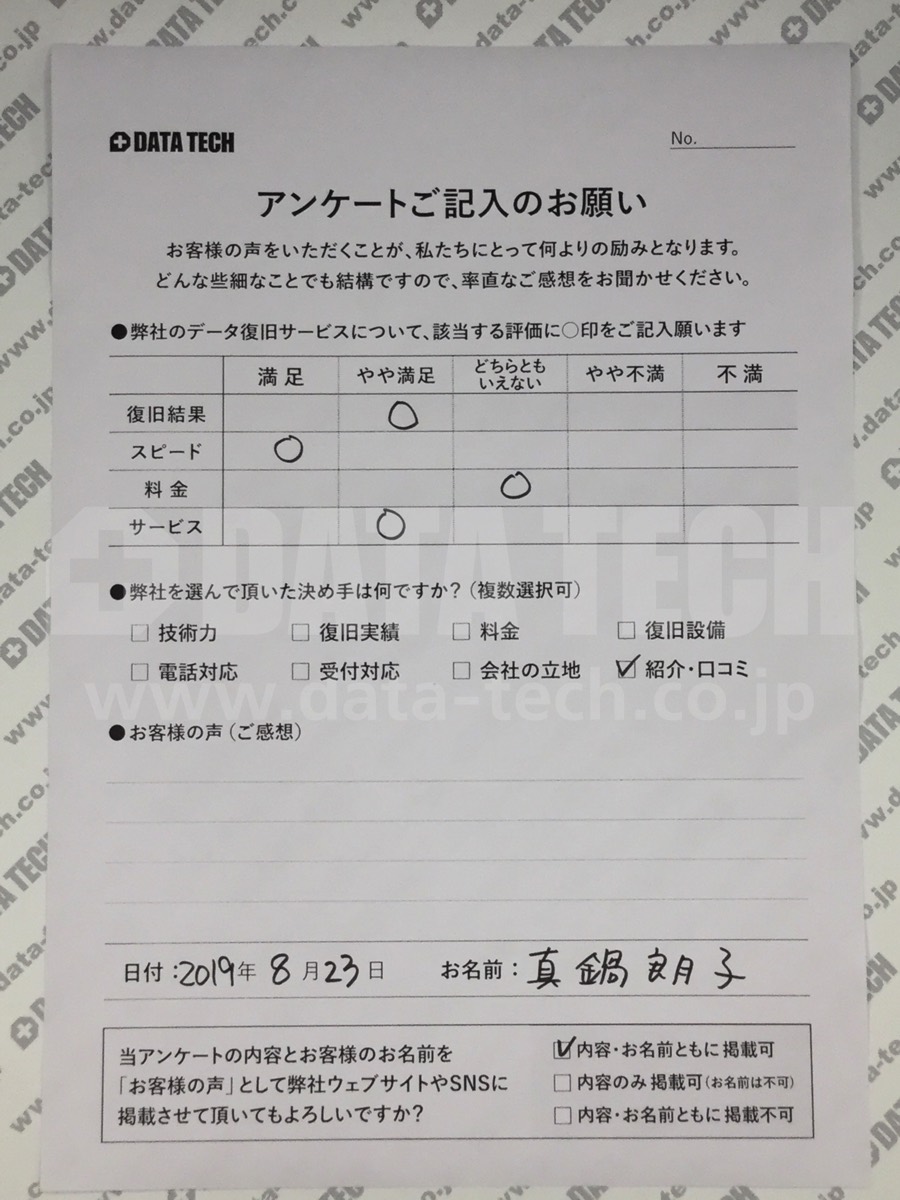 DATA TECH
No.
アンケートご記入のお願い
お客様の声をいただくことが、私たちにとって何よりの励みとなります。
どんな些細なことでも結構ですので、率直なご感想をお聞かせください。
●弊社のデータ復旧サービスについて、該当する評価に○印をご記入願います
満足 やや満足 どちらとも いえない やや不満 不満
復旧結果 ○
スピード ○
料金 ○
サービス ○
DATA TECH
●弊社を選んで頂いた決め手は何ですか?(複数選択可)
□ 技術力 □ 復旧実績 □ 料金 □ 復旧設備
□ 電話対応 □ 受付対応 □ 会社の立地 ☑ 紹介・口コミ
www.data-tech.co.jp
●お客様の声(ご感想)
日付:2019年 8月23日 お名前:真鍋朗子
当アンケートの内容とお客様のお名前を
「お客様の声」として弊社ウェブサイトやSNSに
掲載させて頂いてもよろしいですか?
☑内容・お名前ともに 掲載可
□内容のみ 掲載可(お名前は不可)
□内容・お名前ともに 掲載不可